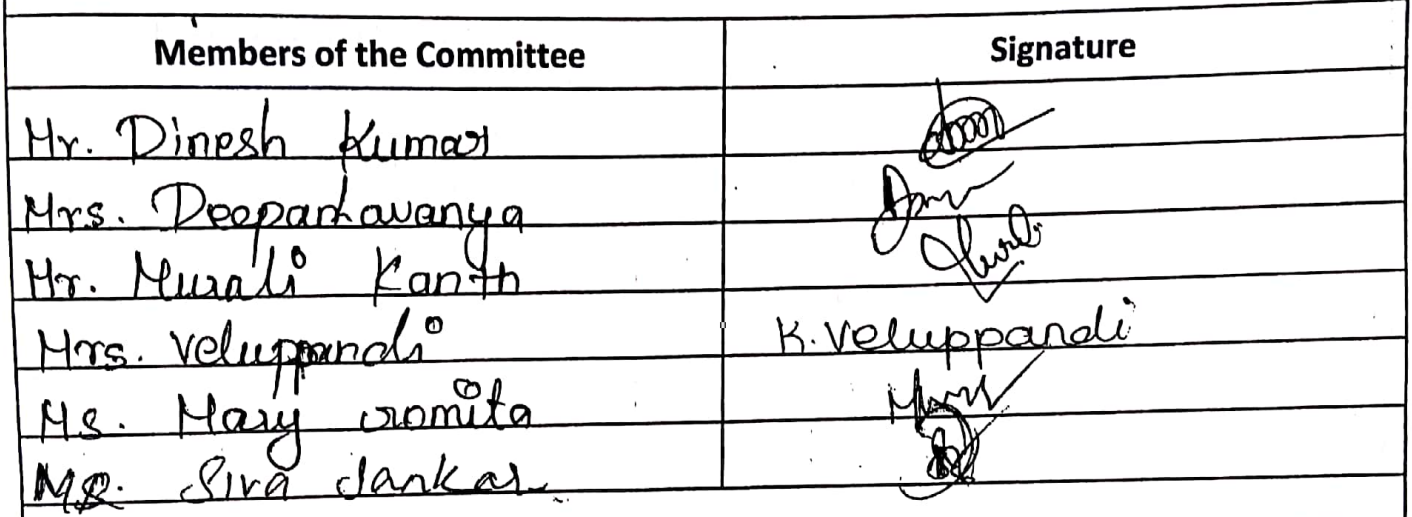 Members of the Committee Signature
Mr. Dinesh Kumar
Mrs. Deepa Lavanya
Mr. Murali Kanth
Mrs. Veluppandi K. Veluppandi
Ms. Mary romita
Siva Sankar